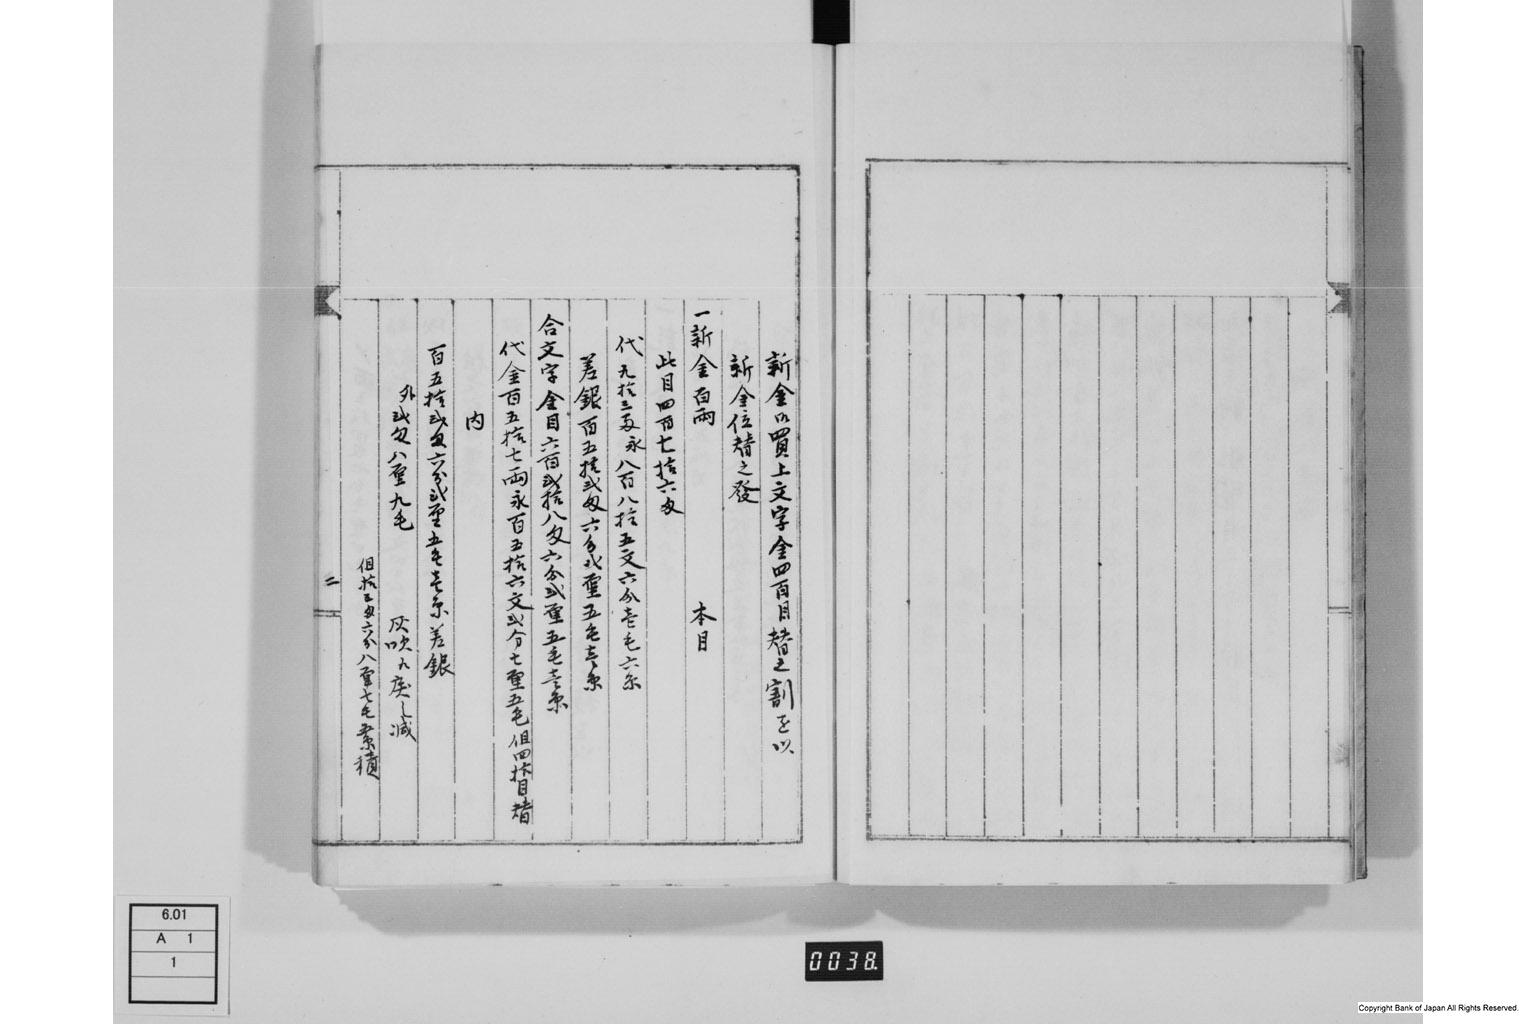 新金ゟ買上文字金四百目替之割を以
新金位替之發
一新金百兩　本目
此目四百七拾六匁
代九拾三両永八百八拾五文六分壱毛六糸
差銀百五拾弐匁六分弐厘五毛壱糸
合文字金目六百弐拾八匁六分弐厘五毛壱糸
代金百五拾七兩永百五拾六文弐分七厘五毛但四拾目替
内
百五拾弐匁六分弐厘五毛壱糸差銀
外弐匁八厘九毛　灰吹ニ戻し減
但拾三匁六分八厘七毛素積
二
6.01
A 1
1
0038.
Copyright Bank of Japan All Rights Reserved.